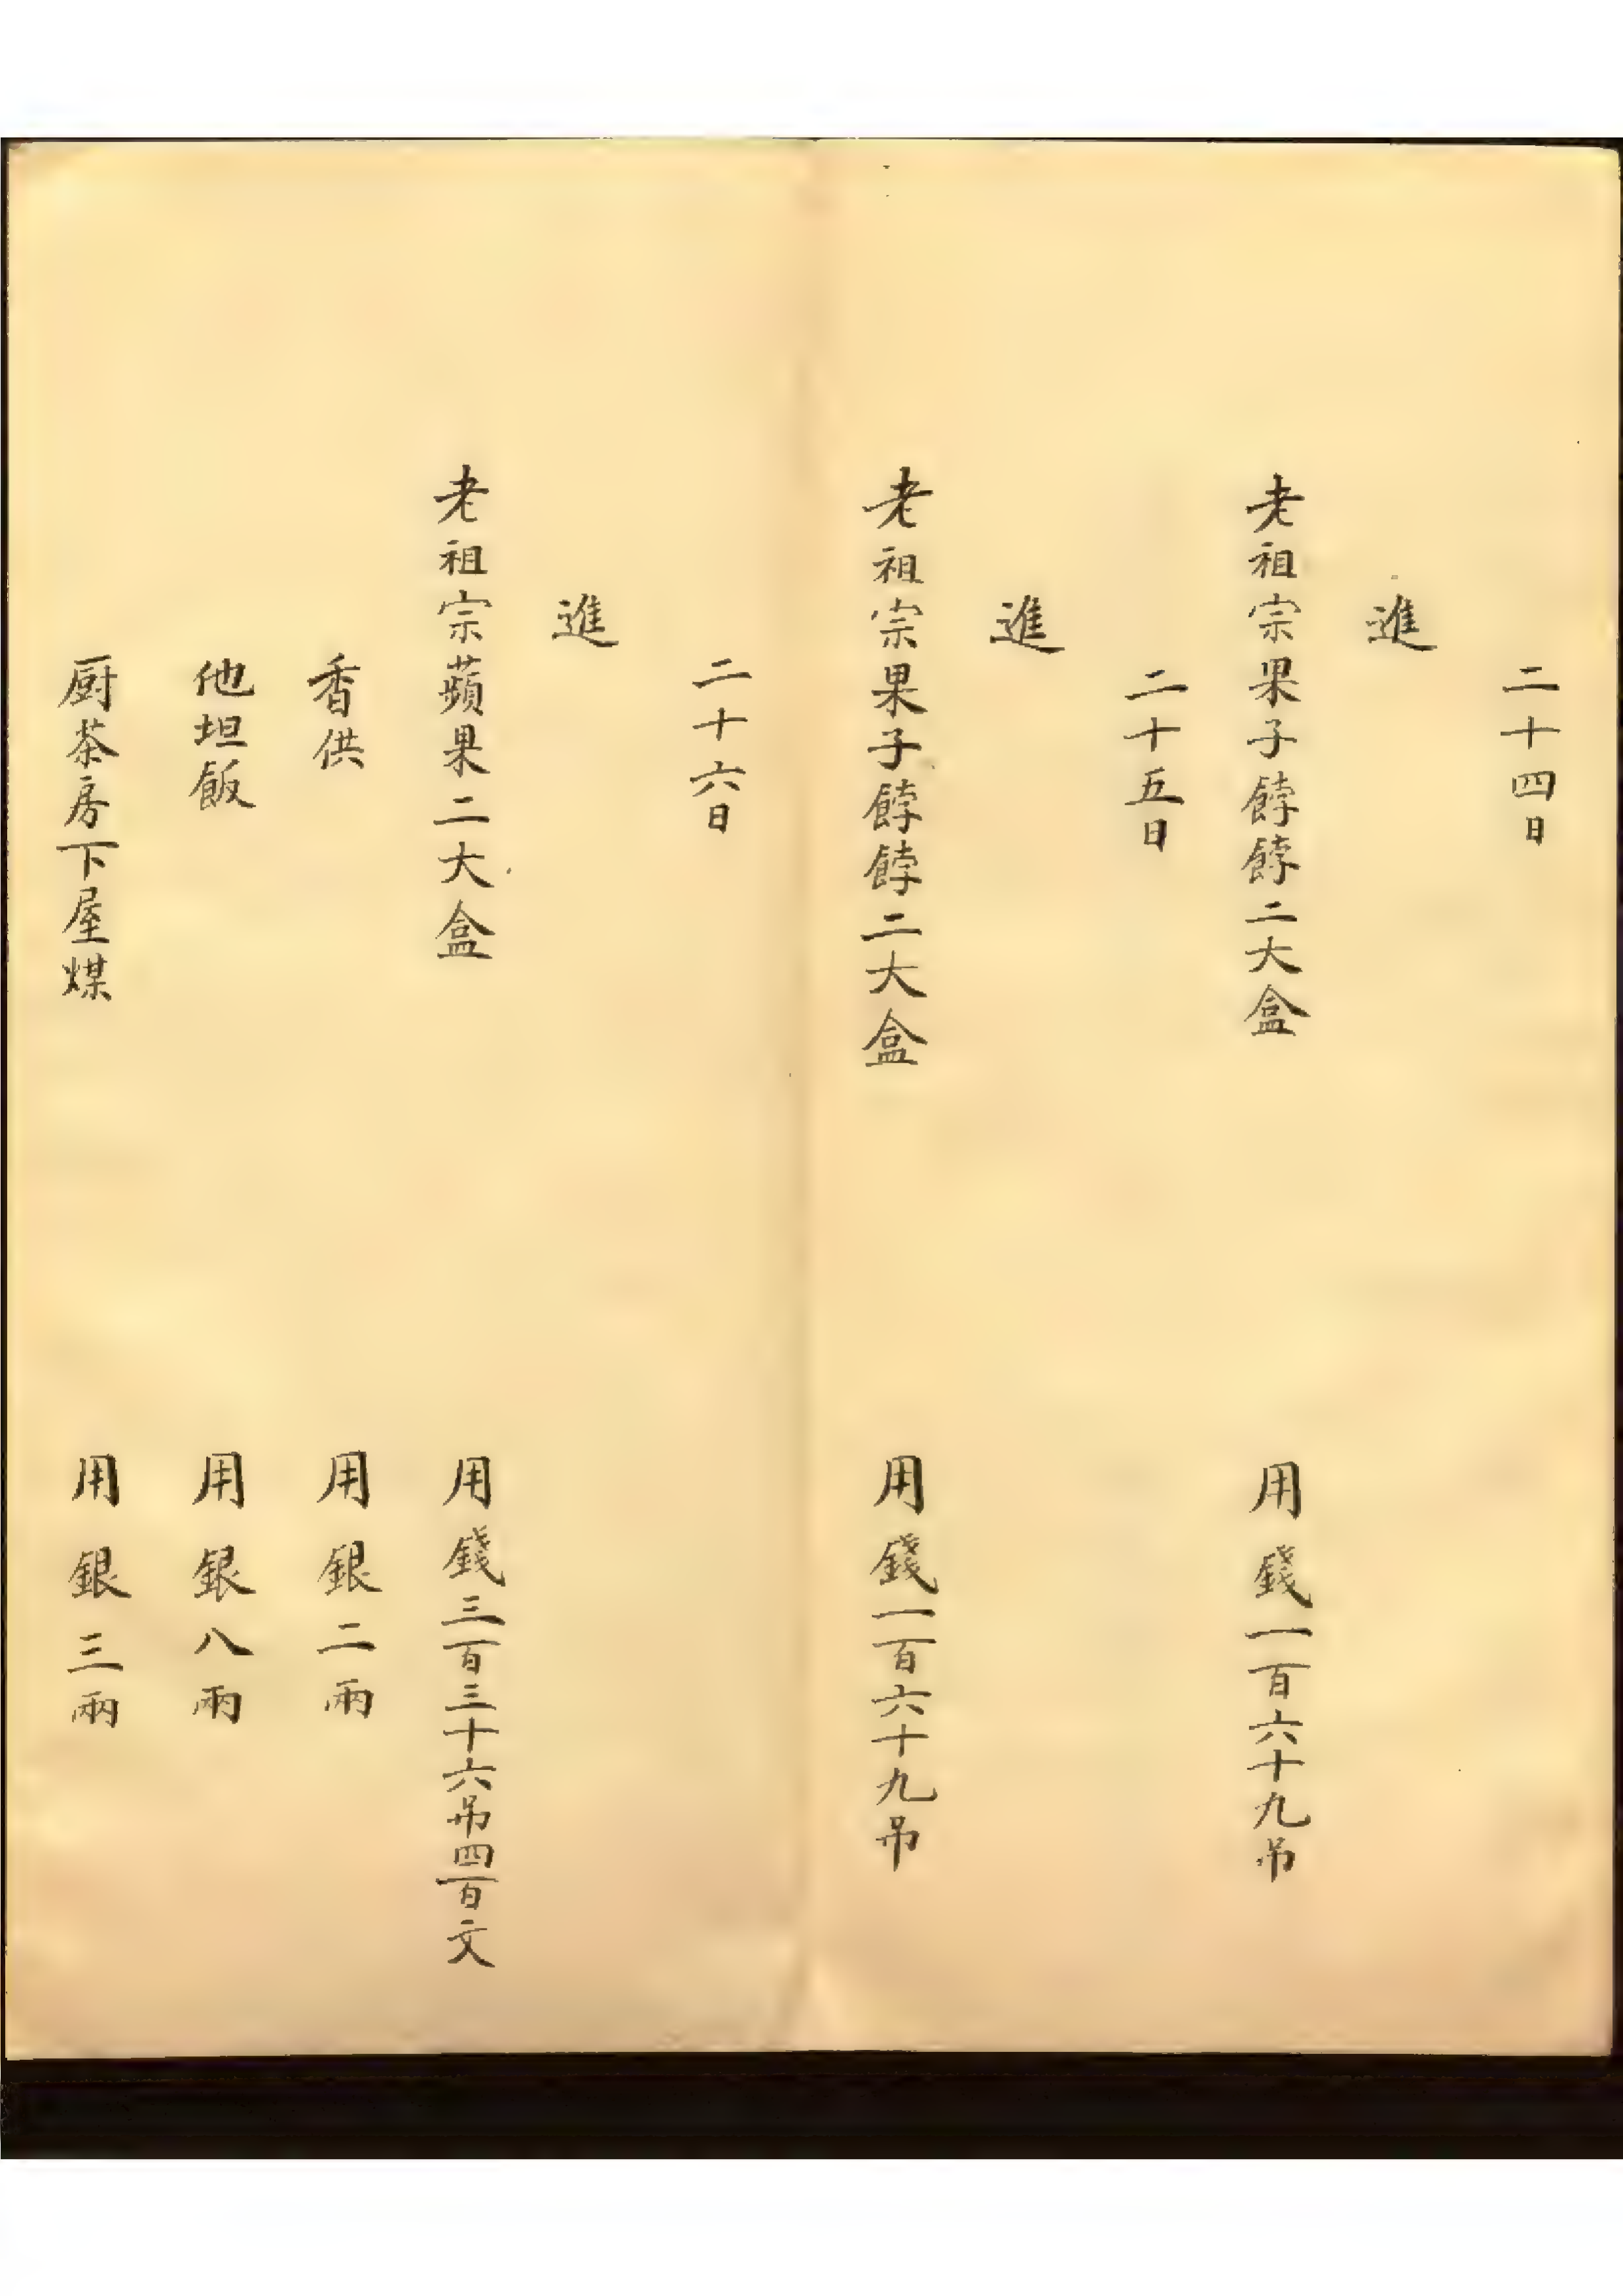 二十四日
進
老祖宗果子餑餑二大盒 用錢一百六十九吊
二十五日
進
老祖宗果子餑餑二大盒 用錢一百六十九吊
二十六日
進
老祖宗蘋果二大盒 用錢三百三十六吊四百文
香供 用銀二兩
他坦飯 用銀八兩
厨茶房下屋煤 用銀三兩